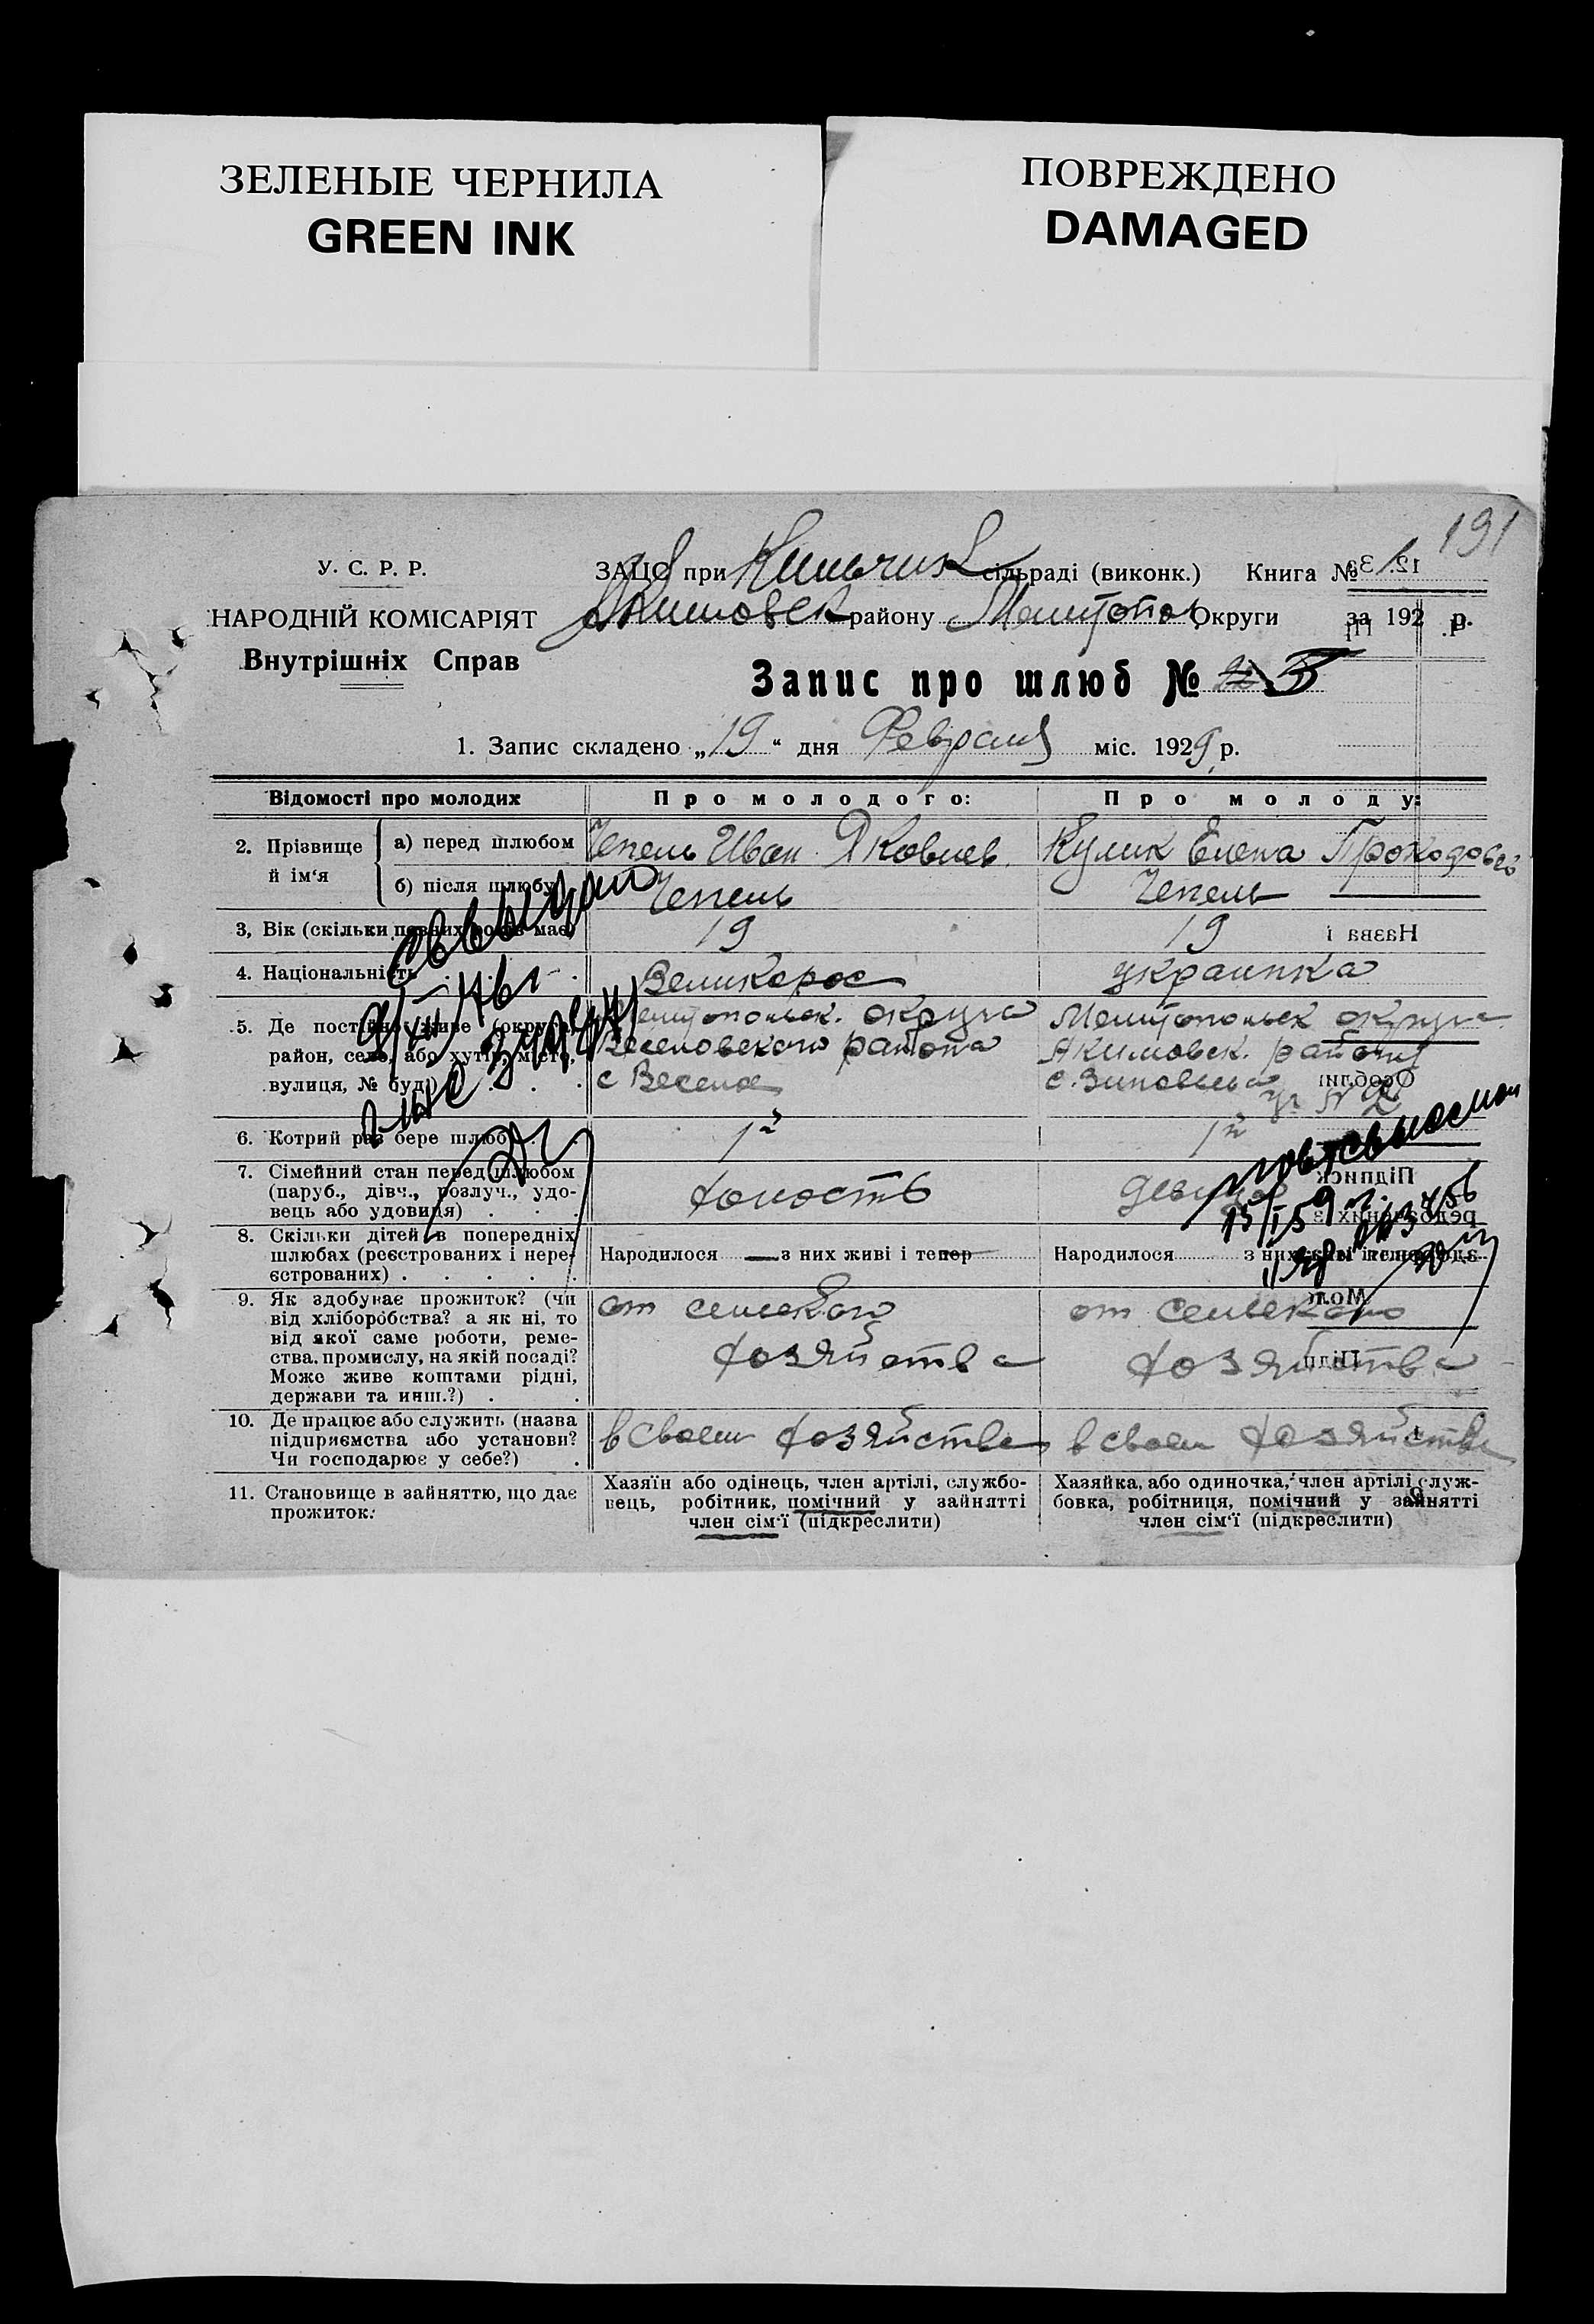 ЗЕЛЕНЫЕ ЧЕРНИЛА
GREEN INK
ПОВРЕЖДЕНО
DAMAGED
191
У. С. Р. Р.
НАРОДНІЙ КОМІСАРІЯТ
Внутрішніх Справ
ЗАЦС при сільраді (виконк.) Книга №
Якимовск району Мелитопол Округи за 192 р.
Запис про шлюб № 5
1. Запис складено „19" дня Февраля міс. 1929 р.
Відомості про молодих
Про молодого:
Про молоду:
2. Прізвище й ім'я
а) перед шлюбом
Чепель Иван Яковлев.
Кулик Елена
б) після шлюбу
Чепель
Чепель
3. Вік (скільки повних років має)
19
19
4. Національність
Великорос
украинка
5. Де постійно живе (округа,
район, село, або хутір, місто,
вулиця, № буд.)
Мелитопольск. округа
Веселовского района
с Веселое
Мелитопольск округа
Акимовск. района
с.
6. Котрий раз бере шлюб
1й
1й
7. Сімейний стан перед шлюбом
(паруб., дівч., розлуч., удо-
вець або удовиця)
холость
девица
8. Скільки дітей в попередніх
шлюбах (реєстрованих і нере-
єстрованих)
Народилося — з них живі і тепер
Народилося з них живі і тепер
9. Як здобуває прожиток? (чи
від хліборобства? а як ні, то
від якої саме роботи, реме-
ства, промислу, на якій посаді?
Може живе коштами рідні,
держави та инш.?)
от сельского
хозяйства
от сельского
хозяйства
10. Де працює або служить (назва
підприємства або установи?
Чи господарює у себе?)
в своем хозяйстве
в своем хозяйстве
11. Становище в зайняттю, що дає
прожиток:
Хазяїн або одінець, член артілі, службо-
вець, робітник, помічний у зайнятті
член сім'ї (підкреслити)
Хазяйка, або одиночка, член артілі служ-
бовка, робітниця, помічний у зайнятті
член сім'ї (підкреслити)